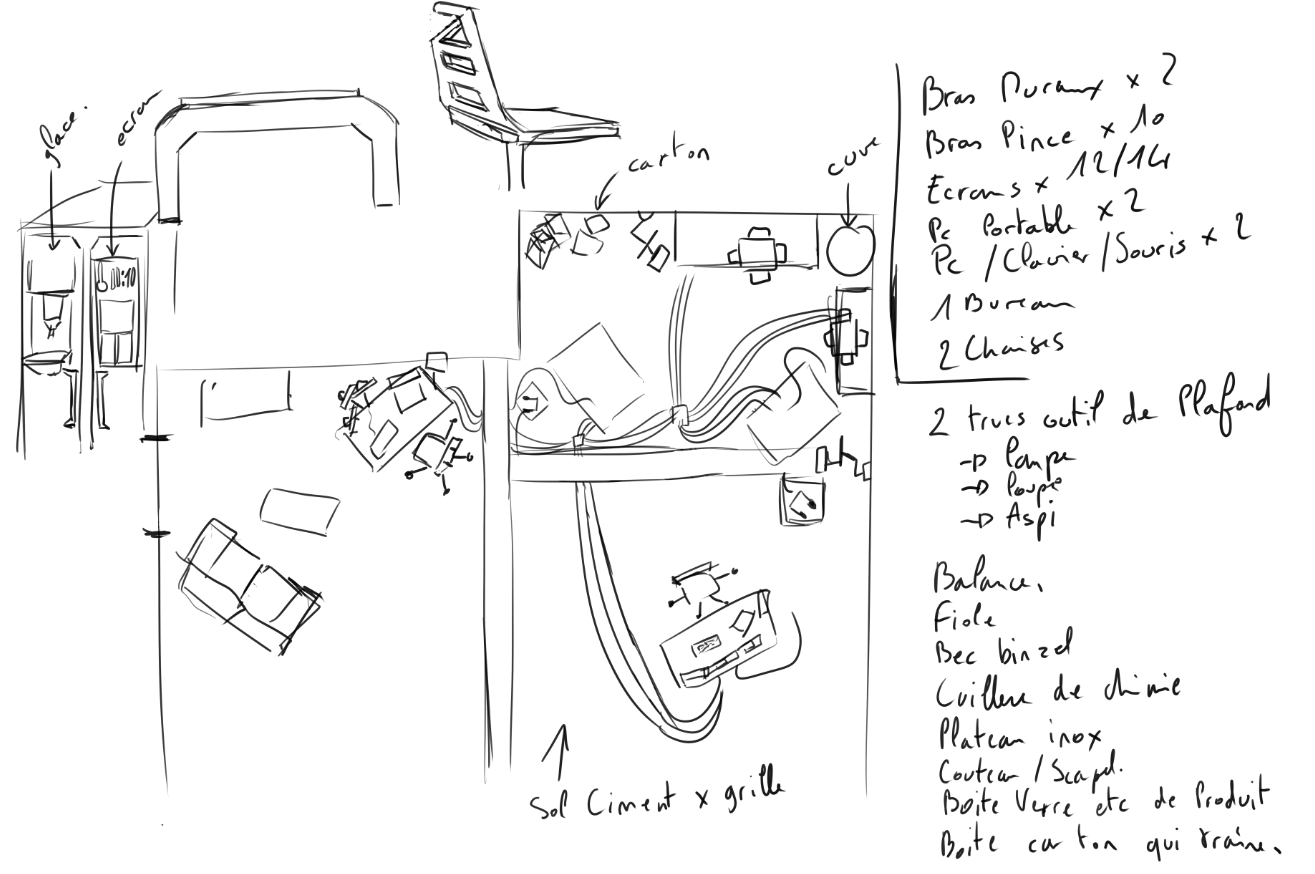 glace.
ecran
carton
cuve
00:10
Sol Ciment x grille
Bras Muraux x 2
Bras Pince x 10
Ecrans x 12/14
Pc Portable x 2
Pc / Clavier / Souris x 2
1 Bureau
2 Chaises
2 trucs outil de Plafond
→ Lampe
→ Loupe
→ Aspi
Balance.
Fiole
Bec binzel
Cuillere de chimie
Plateau inox
Couteau / Scapel.
Boite Verre etc de Produit
Boite carton qui traine.